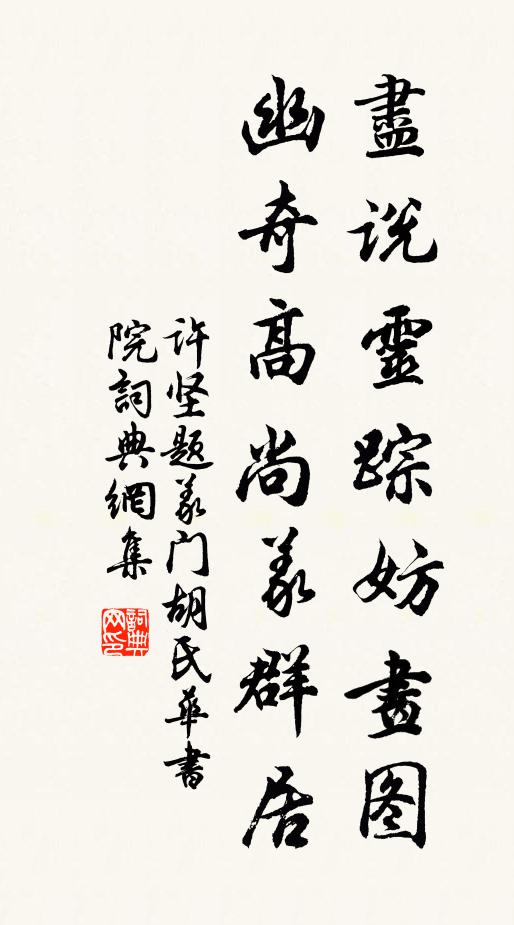 盡说靈踪妨畫图
幽奇高尚義群居
许坚题義门胡氏華書
院詞典網集
詞典网印